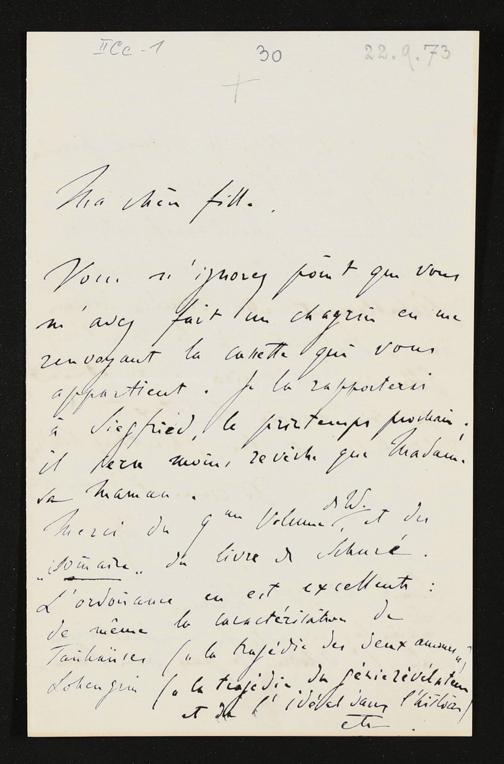 IICc-1 30 22.9.73
Ma chère fille.
Vous n'ignorez point que vous
m'avez fait un chagrin en me
renvoyant la cassette qui vous
appartient. Je la rapporterai
à Siegfried, le printemps prochain.
il sera moins revêche que Madame
sa Maman.
Merci du 9me Volume de W. et du
"Somaire" du livre de Schuré.
L'ordonance en est excellente :
de même la caractérisation de
Tanhäuser ("la tragédie des deux amours",)
Lohengrin ("la tragédie du génie révélateur
et de l'idéal dans l'histoire)
etc.